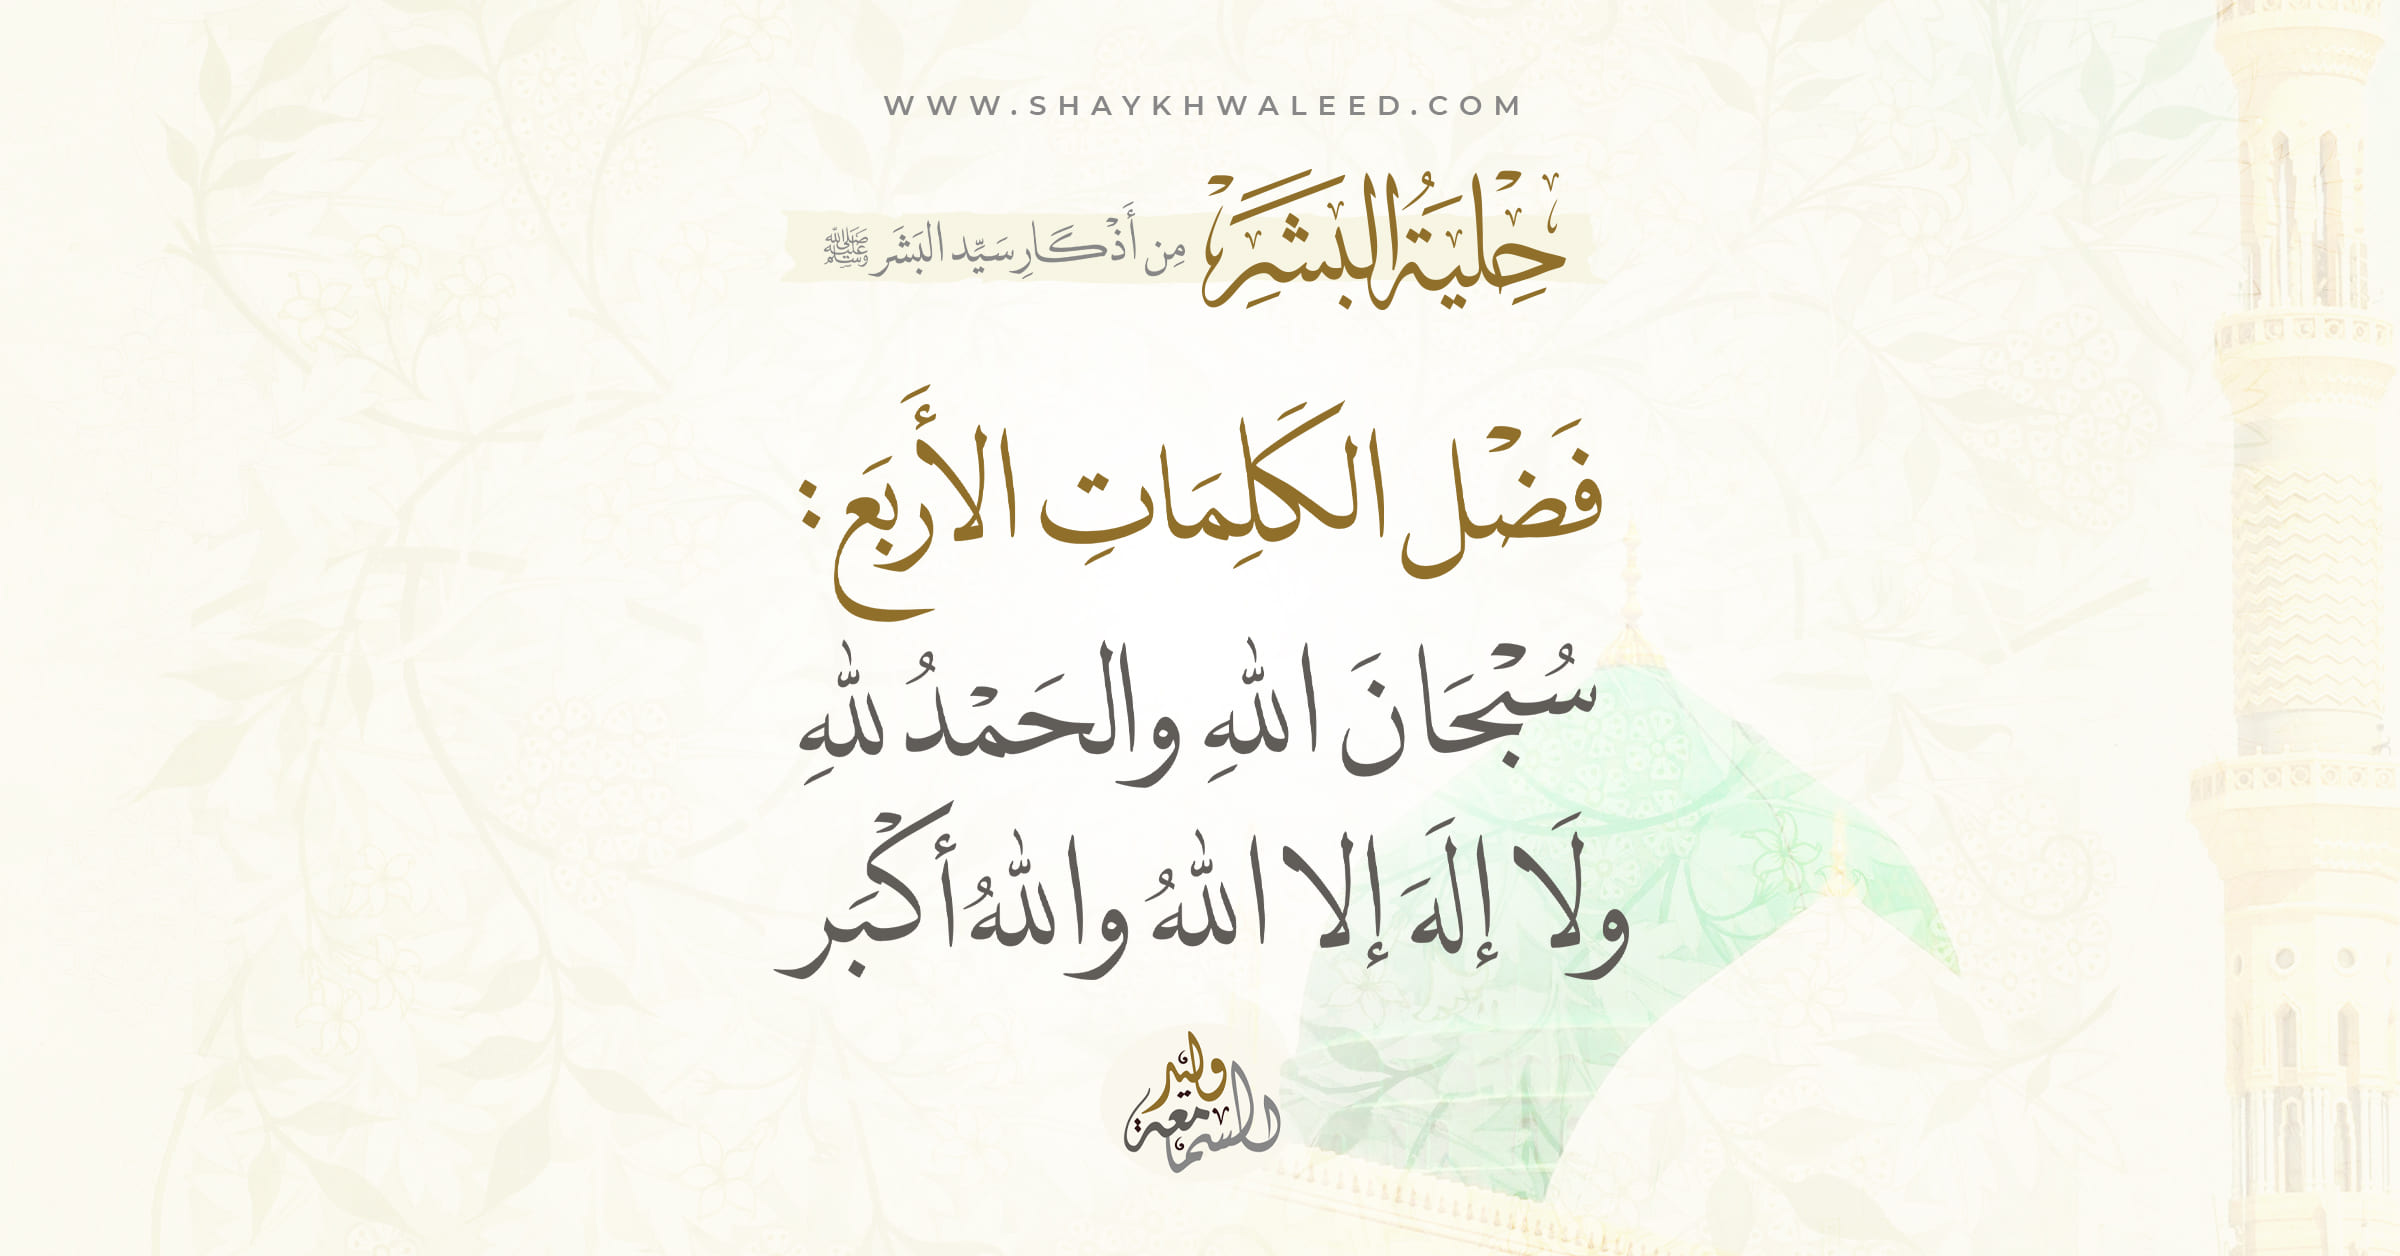 WWW.SHAYKHWALEED.COM
حِلْيَةُ البَشَر مِن أَذْكَارِ سَيِّد البَشَر ﷺ
فَضْل الكَلِمَاتِ الأَربَع:
سُبْحَانَ اللهِ والحَمْدُ للهِ
ولَا إلَهَ إلا اللهُ واللهُ أكْبَر
وليد
السمامعة